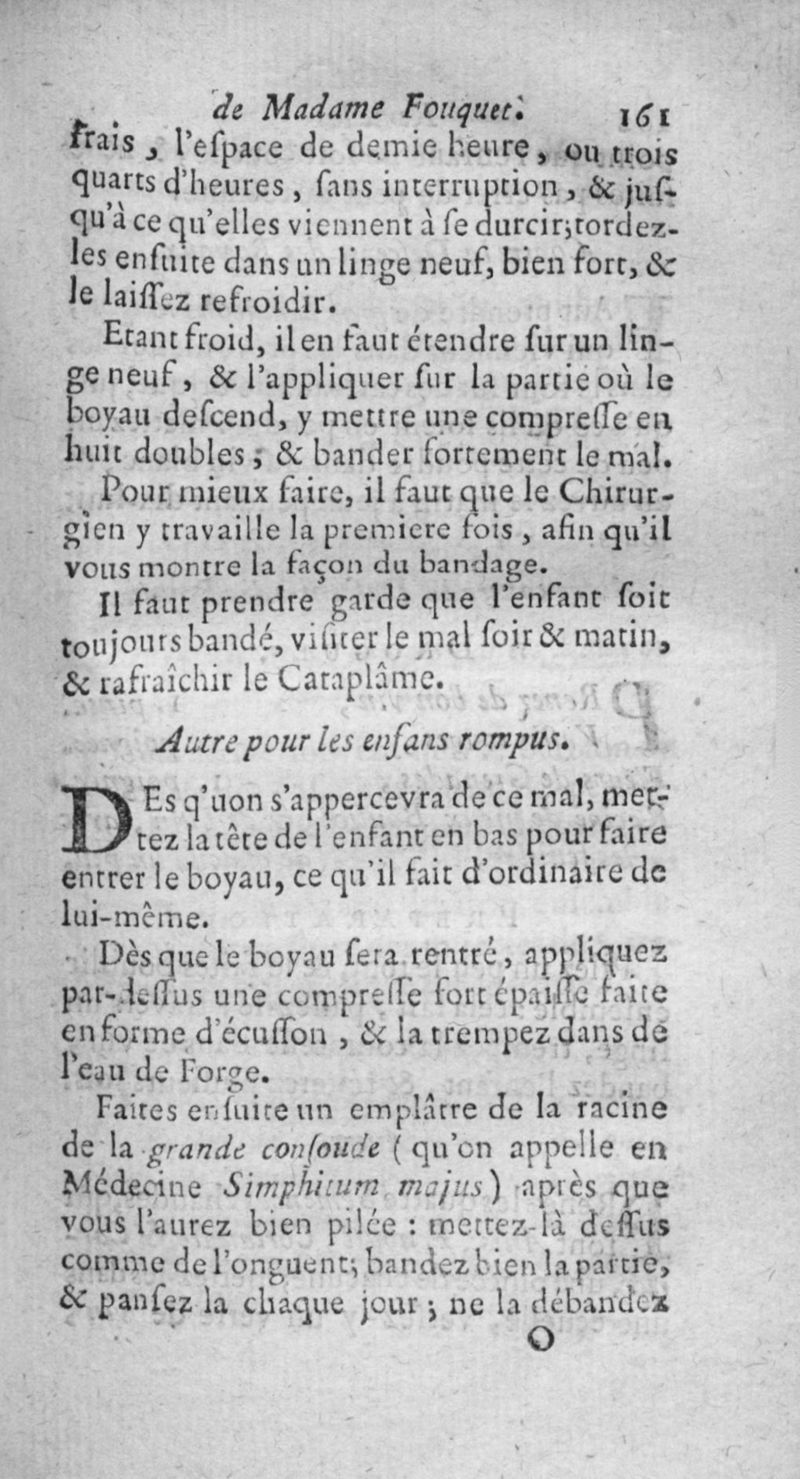 de Madame Fouquet. 161
frais, l'eſpace de demie heure, ou trois
quarts d'heures, ſans interruption, & juſ-
qu'à ce qu'elles viennent à ſe durcir; tordez-
les enſuite dans un linge neuf, bien fort, &
le laiſſez refroidir.
Etant froid, il en faut étendre ſur un lin-
ge neuf, & l'appliquer ſur la partie où le
boyau deſcend, y mettre une compreſſe en
huit doubles; & bander fortement le mal.
Pour mieux faire, il faut que le Chirur-
gien y travaille la premiere fois, afin qu'il
vous montre la façon du bandage.
Il faut prendre garde que l'enfant ſoit
toujours bandé, viſiter le mal ſoir & matin,
& rafraîchir le Cataplâme.
Autre pour les enfans rompus.
DEs q'uon s'appercevra de ce mal, met-
tez la tête de l'enfant en bas pour faire
entrer le boyau, ce qu'il fait d'ordinaire de
lui-même.
Dès que le boyau ſera rentré, appliquez
par-deſſus une compreſſe fort épaiſſe faite
en forme d'écuſſon, & la trempez dans de
l'eau de Forge.
Faites enſuite un emplâtre de la racine
de la grande conſoude (qu'on appelle en
Médecine Simphitum majus) après que
vous l'aurez bien pilée : mettez-là deſſus
comme de l'onguent; bandez bien la partie,
& panſez la chaque jour; ne la débandez
O